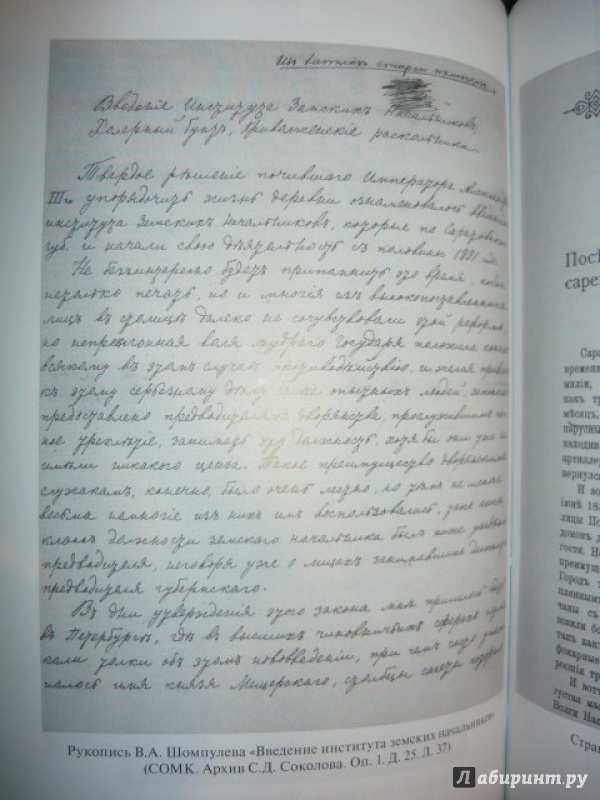 Изъ записокъ стараго помѣщика
Введенiе Института Земскихъ Начальниковъ,
Холерный бунтъ, раскольники.
Твердое рѣшенiе почившаго Императора Александра
IIIго упорядочить жизнь деревни ознаменовалось введенiемъ
института Земскихъ Начальниковъ, которые по Саратовской
губ. и начали свою дѣятельность съ половины 1891 года.
Не безъинтересно будетъ припомнить это время, когда
не только печать, но и многiя изъ высокопоставленныхъ
лицъ въ столицѣ далеко не сочувствовали этой реформѣ,
но непреклонная воля мудраго Государя положила конецъ
всякому въ этомъ случаѣ противодѣйствiю, и желая привлечь
къ этому серьезному дѣлу болѣе опытныхъ людей, закономъ
предоставлено предводителямъ дворянства, прослужившимъ
ное трехлѣтiе, занимать эту должность, хотя бы они уже не
имѣли никакого ценза. Такое преимущество дворянскимъ
служакамъ, конечно, было очень лестно, но тѣмъ не менѣе
весьма немногiе изъ нихъ имъ воспользовались, такъ какъ
классъ должности земскаго начальника былъ ниже уѣзднаго
предводителя, не говоря уже о лицахъ занимавшихъ должность
предводителя губернскаго.
Въ дни утвержденiя этого закона мнѣ пришлось быть
въ Петербургѣ, гдѣ въ высшихъ чиновничьихъ сферахъ
толки объ этомъ нововведенiи, при чемъ часто
налось имя князя Мещерскаго, столбцы газеты
Рукопись В.А. Шомпулева «Введение института земских начальников»
(СОМК. Архив С.Д. Соколова. Оп. 1. Д. 25. Л. 37)
Посѣ
сарег
Сара
времени
милiи,
какъ тр
мѣсяцъ,
парусны
находив
артиллер
вернулся
И вот
iюнѣ 18
лицы По
домовъ д
гости. На
преимущ
Городъ т
планным
чаны съ
возили бо
такъ какъ
фонарные
россiя тр
И вотъ
густая мас
Волги Нас
Стран
Лабиринт.ру